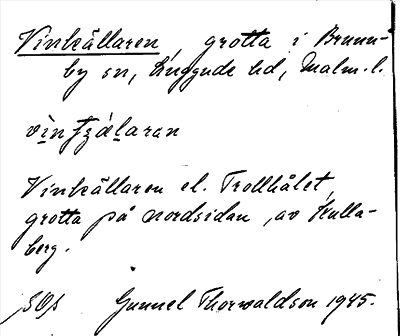 Vinkällaren, grotta i Brunn-
by sn, Luggude hd, Malm. l.
Vinkällaren el. Trollhålet,
grotta på nordsidan, av Kulla-
berg.
Gunnel Thorwaldson 1945.